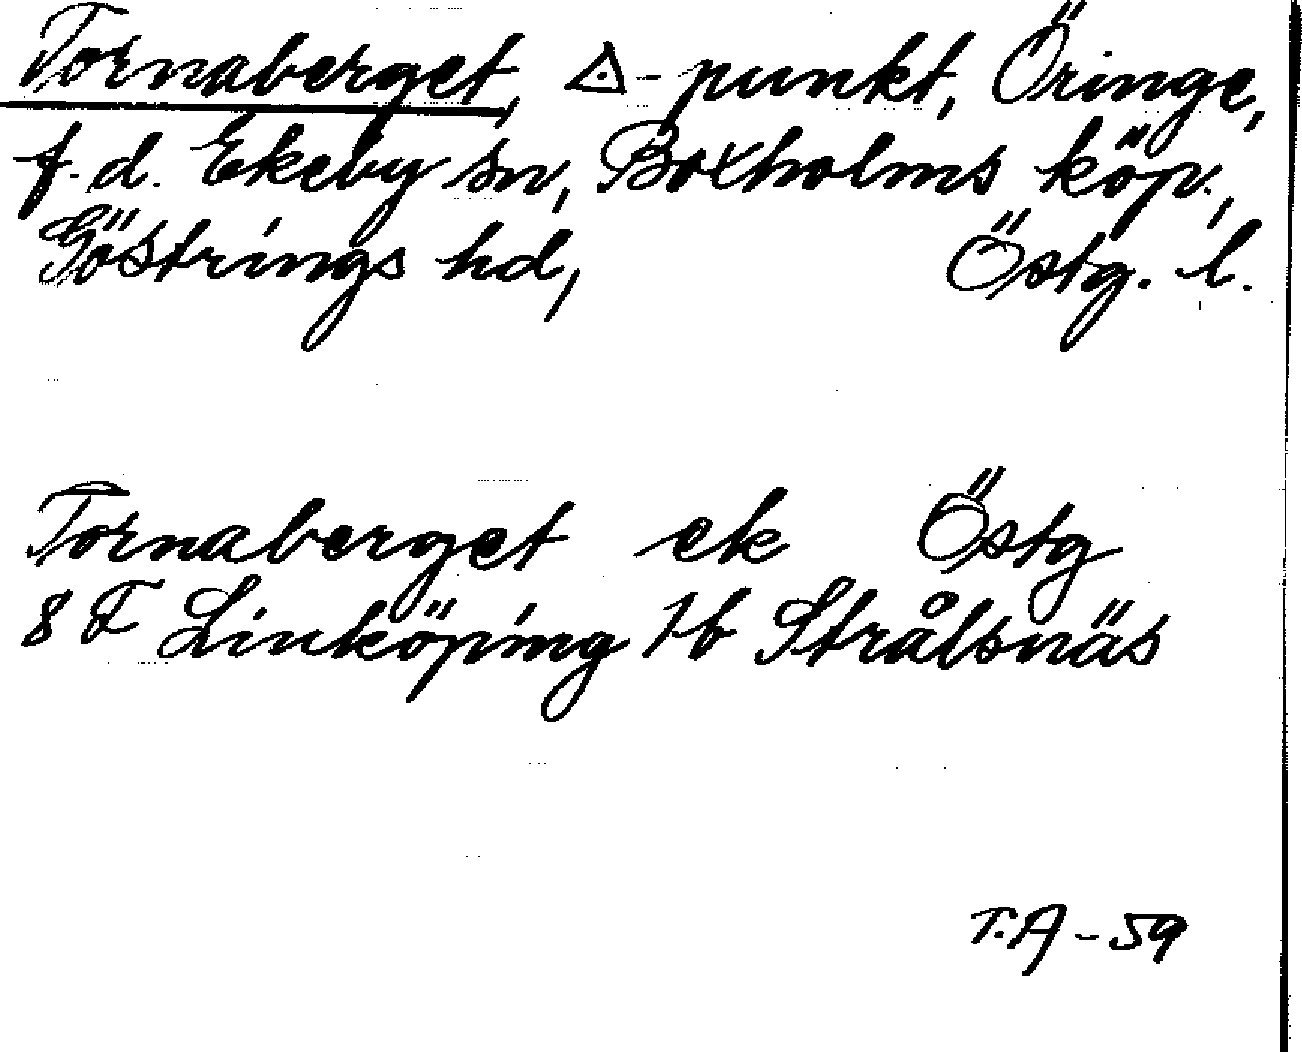 Tornaberget, ⟁-punkt, Öringe,
f.d. Ekeby sn, Boxholms köp.,
Göstrings hd, Östg. l.
Tornaberget ek Östg
8 F Linköping 1b Strålsnäs
T.A-59